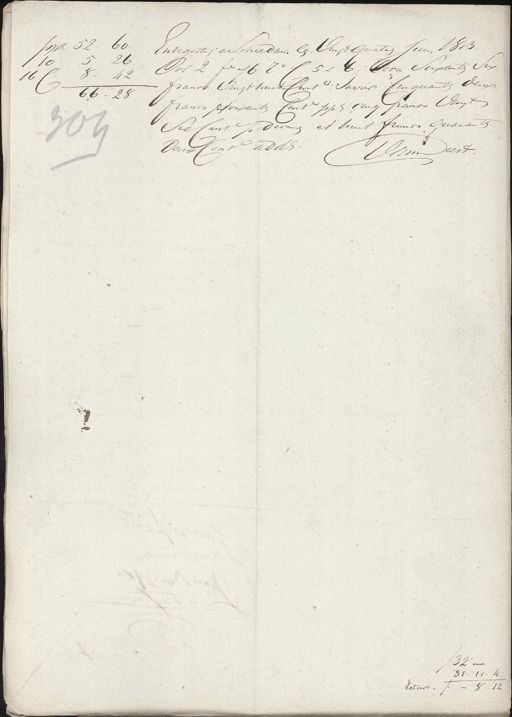 pp.t 52. 60.
10 5 26
16 C 8. 42
66-28
309
Enregistré à Amsterdam le Vingt quatre Juin 1813.
Vol 2 f.o 67 v.o C 5 & 6. Reçu Soixante Six
francs Vingt huit Cent.s Savoir Cinquante deux
francs soixante Cent.s pp.t cinq francs Vingt
Six Cent.s p. dixme et huit francs quarante
deux Cent.s
32 -
31-11-4
Retour - f - 8-12